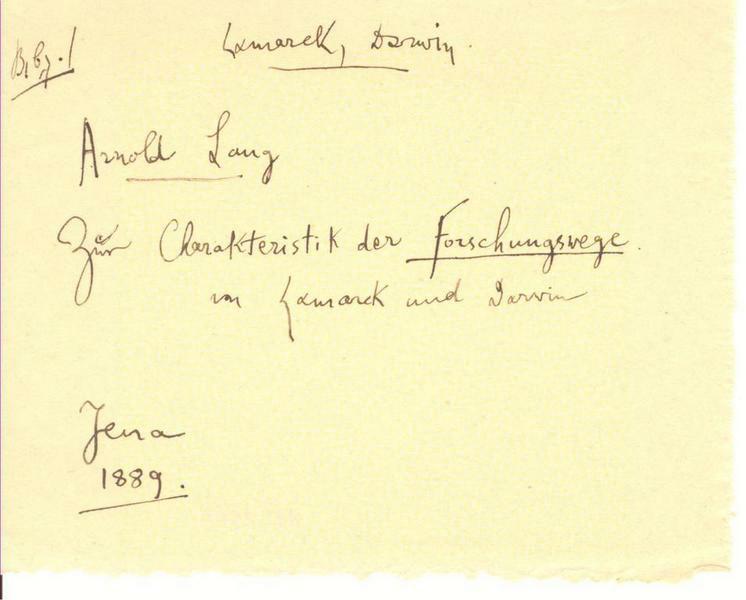 Lamarck, Darwin.
Arnold Lang
Zur Charakteristik der Forschungswege.
von Lamarck und Darwin
Jena
1889.